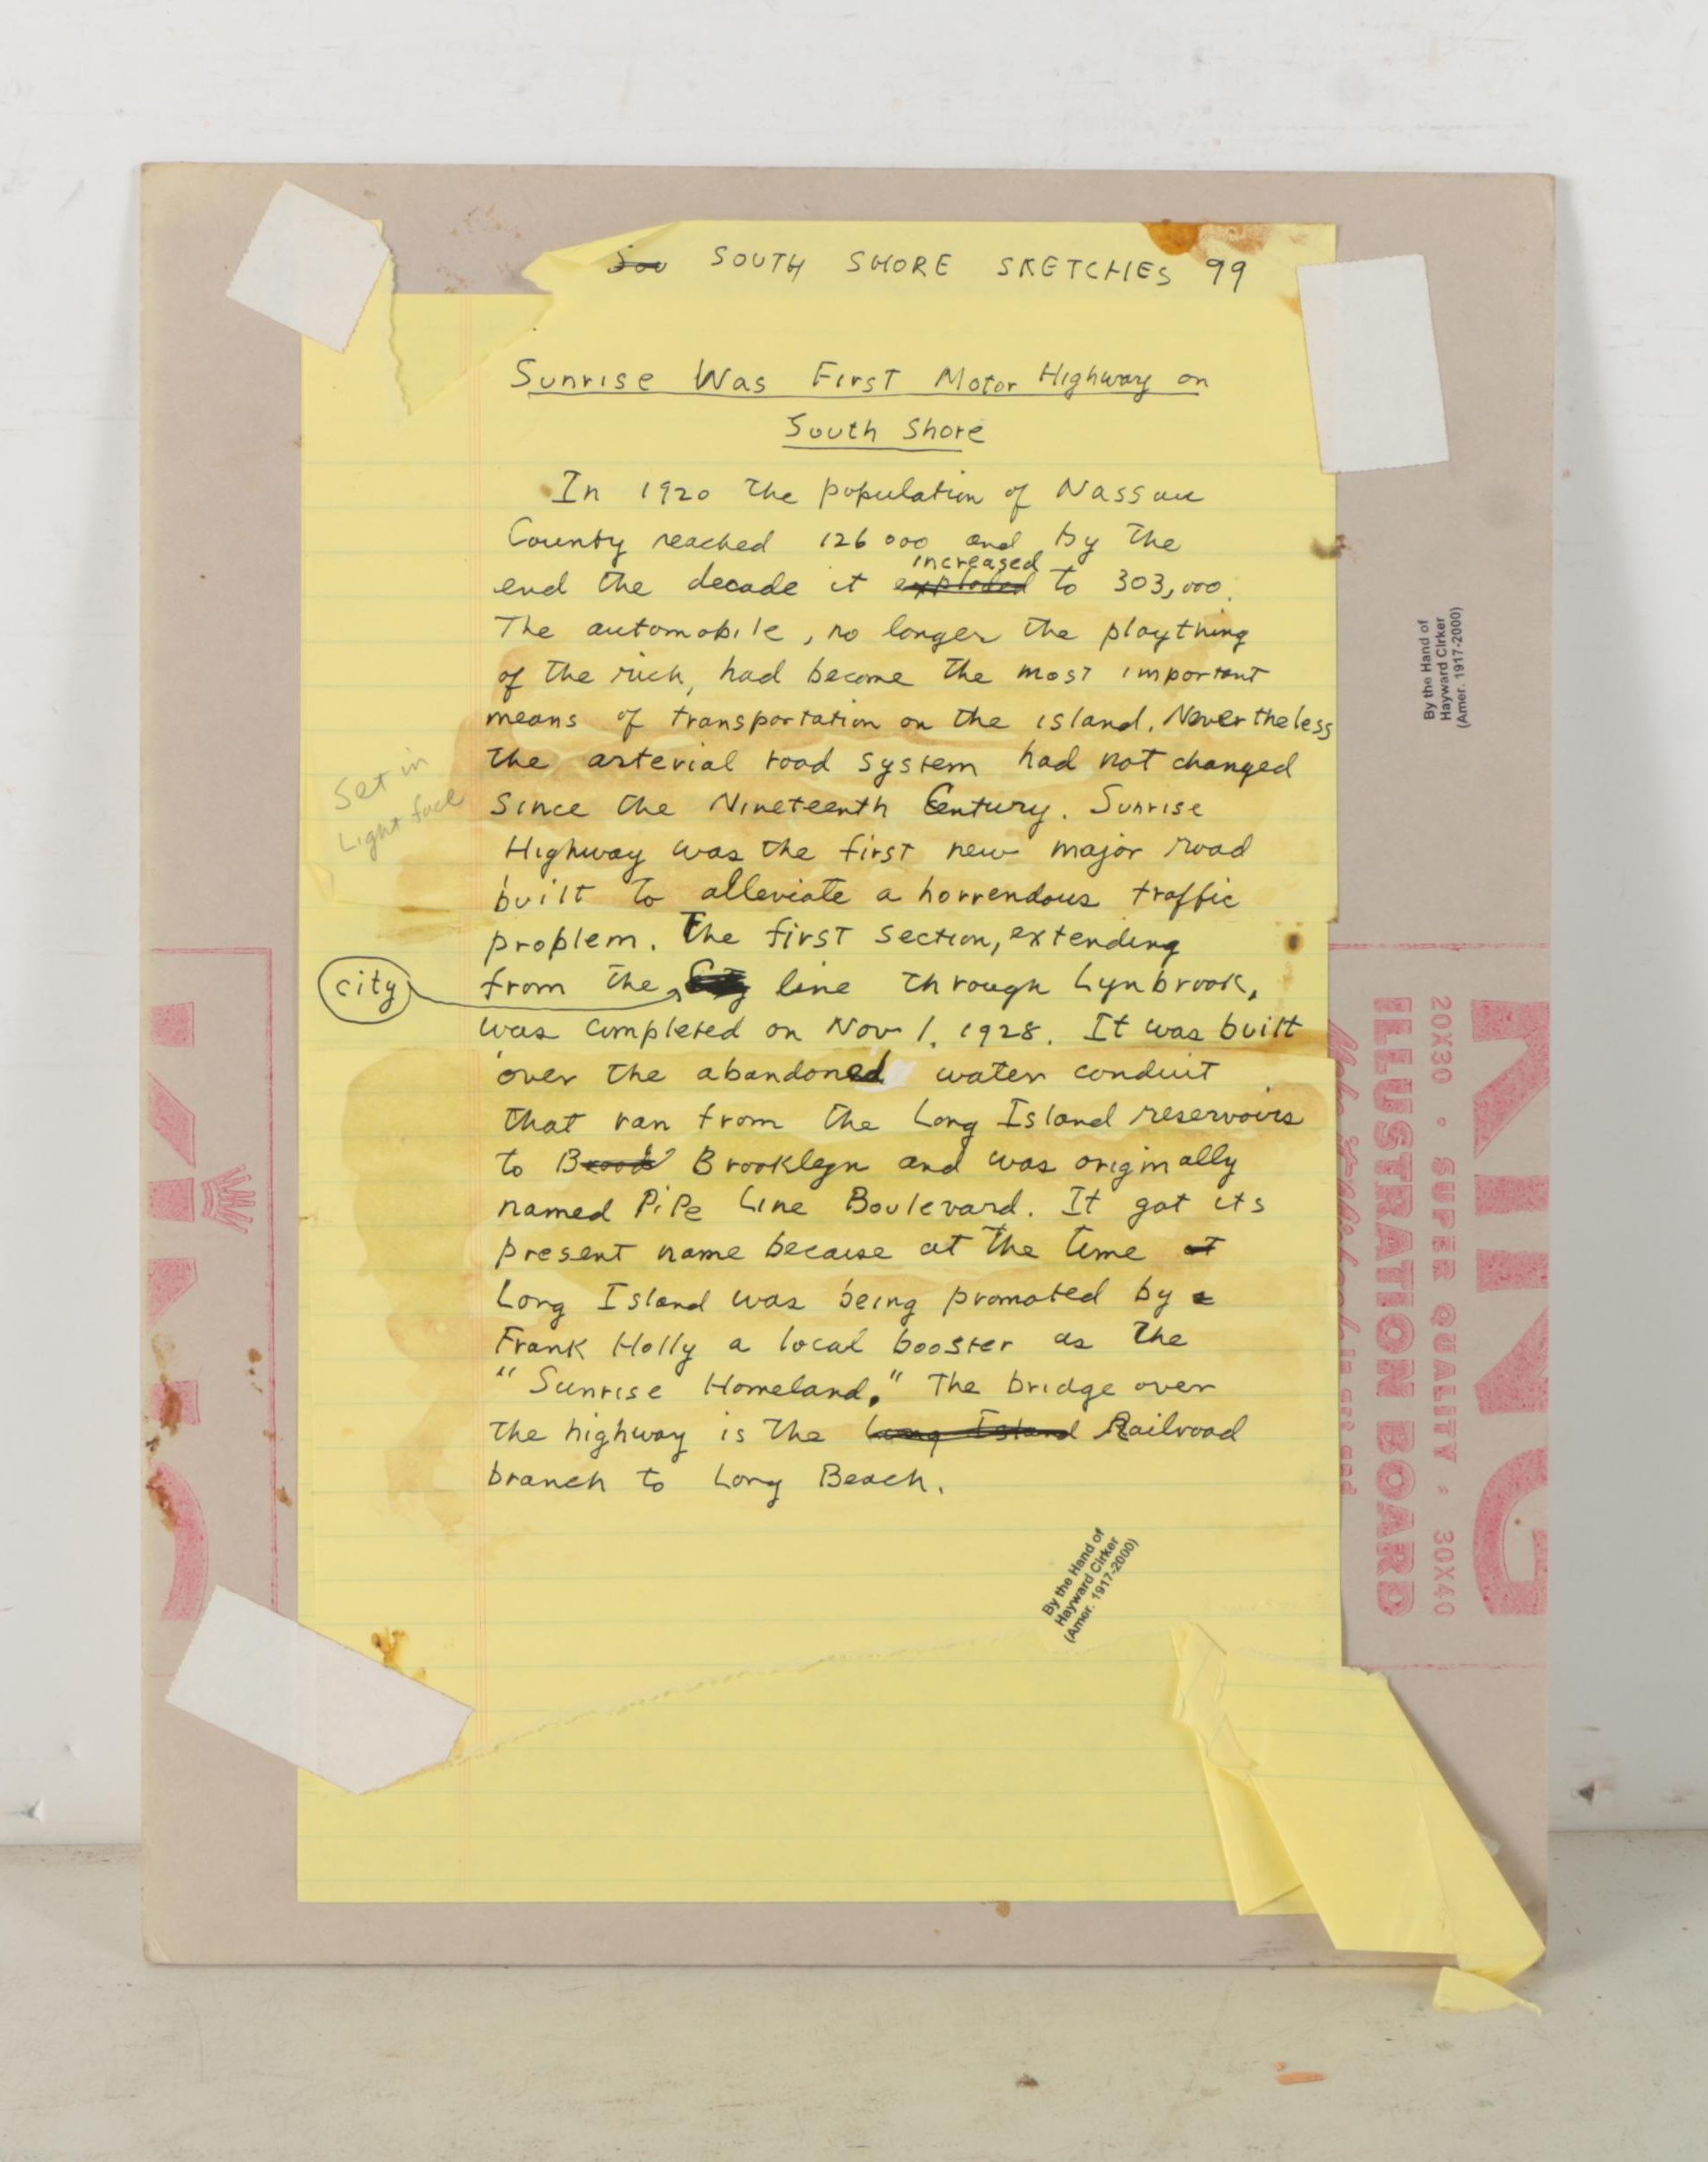 Sou SOUTH SHORE SKETCHES 99
Sunrise Was First Motor Highway on
South Shore
In 1920 the population of Nassau
County reached 126 000 and by the
increased
end the decade it exploded to 303,000.
The automobile, no longer the plaything
of the rich, had become the most important
means of transportation on the island. Nevertheless
the arterial road system had not changed
Set in
Light face
since the Nineteenth Century. Sunrise
Highway was the first new major road
built to alleviate a horrendous traffic
problem. The first section, extending
city
from the City line through Lynbrook,
was completed on Nov 1, 1928. It was built
over the abandoned water conduit
that ran from the Long Island reservoirs
to Brook Brooklyn and was originally
named PiPe Line Boulevard. It got its
present name because at the time at
Long Island was being promoted by a
Frank Holly a local booster as the
"Sunrise Homeland." The bridge over
the highway is the Long Island Railroad
branch to Long Beach.
By the Hand of
Hayward Cirker
(Amer. 1917-2000)
By the Hand of
Hayward Cirker
(Amer. 1917-2000)
KING
ILLUSTRATION BOARD
20X30 • SUPER QUALITY • 30X40